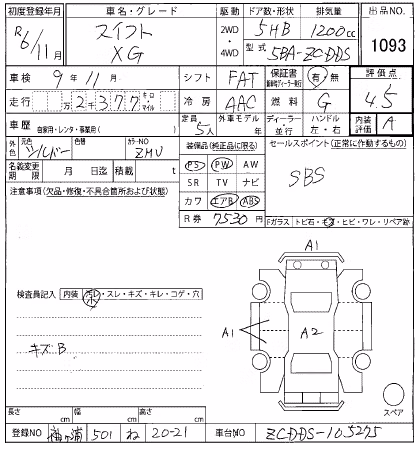 初度登録年月 車名・グレード 駆動 ドア数・形状 排気量 出品NO.
R6/11月 スイフト XG 2WD・4WD 5HB 1200cc 1093
型式 5BA-ZCDDS
車検 9年11月 シフト FAT 保証書 有・無 評価点
走行 万2千377 キロ マイル 冷房 AAC 燃料 G 4.5
車歴 自家用・レンタ・事業用( ) 定員 5人 外車モデル 年 ディーラー・並行 ハンドル 左・右 内装評価 A
外色 元色 シルバー 色替 カラーNO ZMU 装備品(純正品に限る) セールスポイント(正常に作動するもの)
名義変更期限 月 日迄 積載 t PS PW AW SBS
注意事項(欠品・修復・不具合箇所および状態) SR TV ナビ
カワ エアB ABS
R券 7530円 Fガラス トビ石・キズ・ヒビ・ワレ・リペア跡
A1
検査員記入 内装 汚レ・スレ・キズ・キレ・コゲ・穴
小
A1 A2
キズB
スペア
長さ cm 幅 cm 高さ cm
登録NO 袖ヶ浦 501 ね 20-21 車台NO ZCDDS-105275